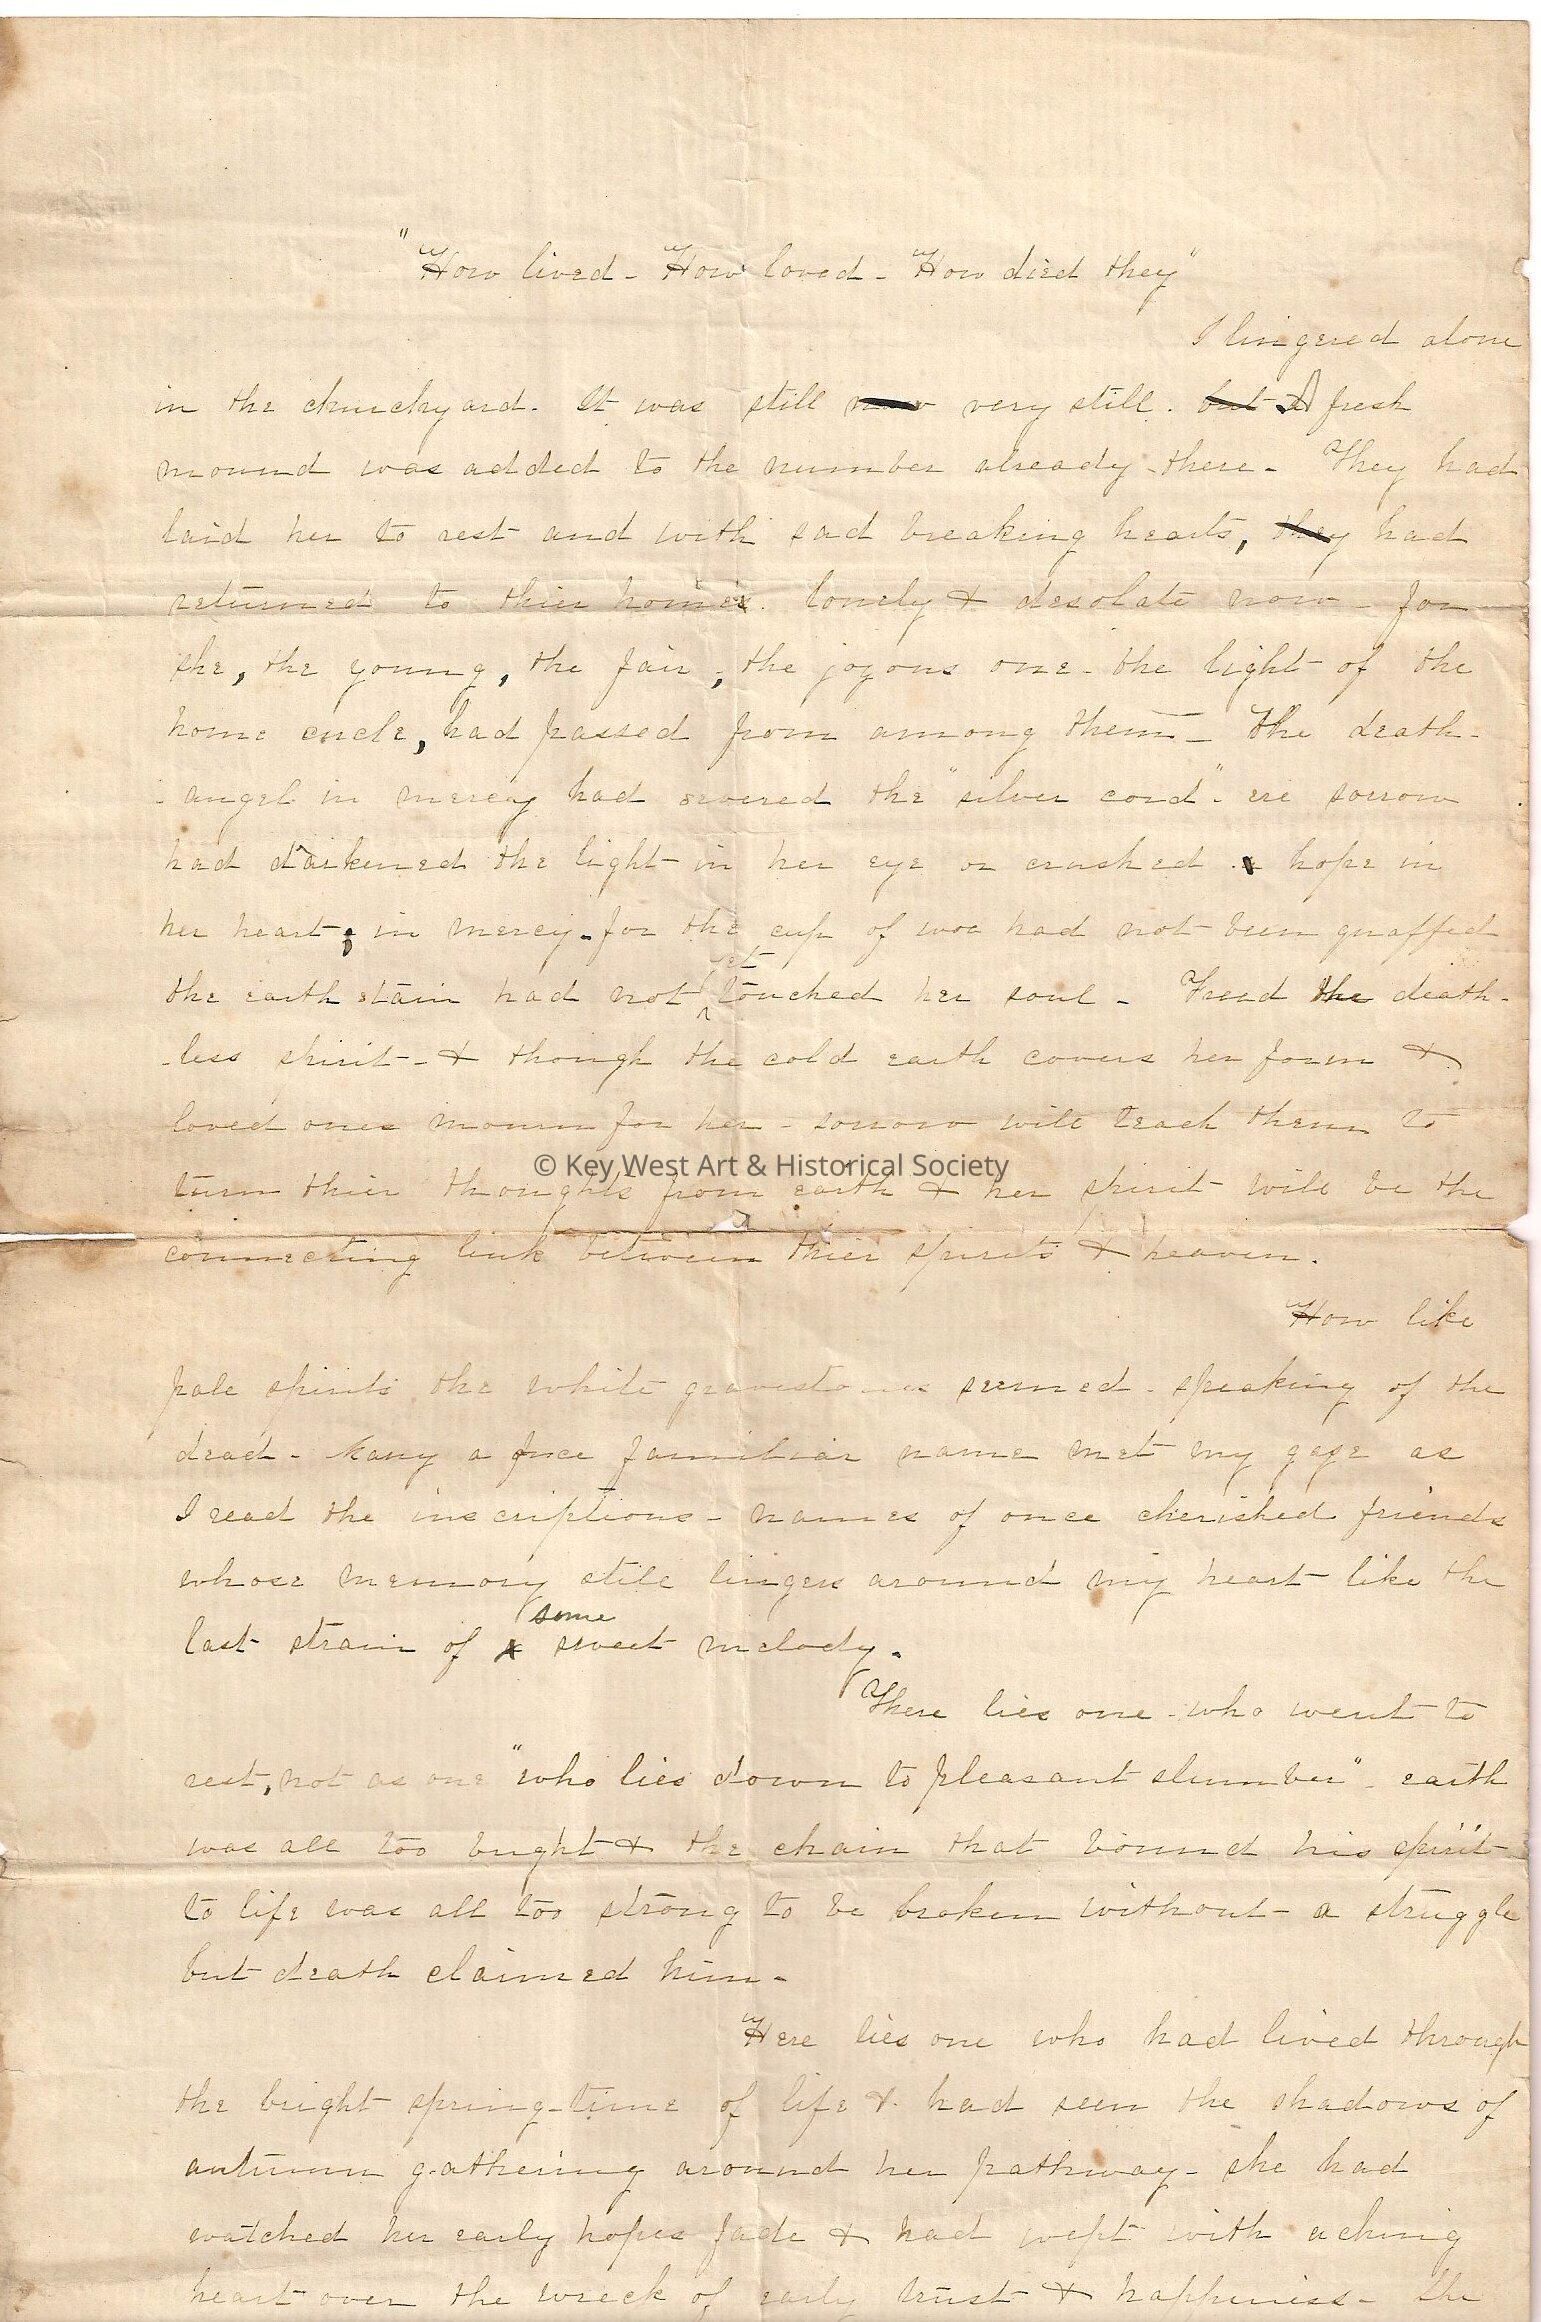 "How lived - How loved - How died they"
I lingered alone
in the churchyard. It was still now very still. but A fresh
mound was added to the number already there - They had
laid her to rest and with sad breaking hearts, they had
returned to thier homes. lonely & desolate now - for
she, the young, the fair, the joyous one - the light of the
home circle, had passed from among them - the death-
-angel in mercy had severed the "silver cord" - ere sorrow
had darkened the light in her eye or crushed a hope in
her heart; in mercy - for the cup of woe had not been quaffed
yet
the earth stain had not touched her soul - Freed the death-
-less spirit - & though the cold earth covers her form &
loved ones mourn for her - sorrow will teach them to
© Key West Art & Historical Society
turn thier thoughts from earth & her spirit will be the
connecting link between thier spirits & heaven.
How like
pale spirits the white gravestones seemed - speaking of the
dead - Many a familiar name met my gaze as
I read the inscriptions - names of once cherished friends
whose memory still lingers around my heart like the
some
last strain of a sweet melody.
There lies one - who went to
rest, not as one "who lies down to pleasant slumber" - earth
was all too bright & the chain that bound his spirit
to life was all too strong to be broken without a struggle
but death claimed him -
Here lies one who had lived through
the bright spring-time of life & had seen the shadows of
autumn gathering around her pathway - she had
watched her early hopes fade & had wept with aching
heart over the wreck of early trust & happiness - the